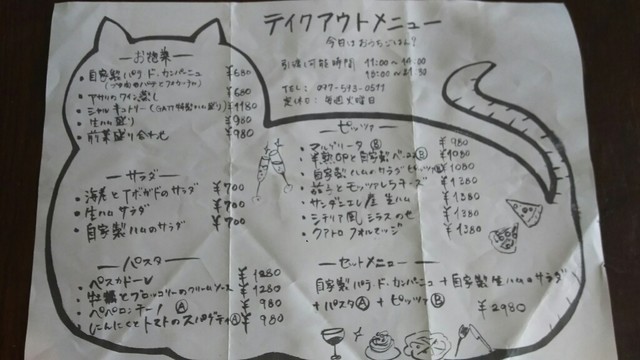 テイクアウトメニュー
今日はおうちごはん?
引渡し可能時間 11:00~14:00
TEL:
定休日:毎週火曜日
お惣菜
・自家製パテ・ド・カンパーニュ ¥680
・アサリのワイン蒸し ¥680
・シャルキュトリー ¥1180
・生ハム盛り ¥980
・前菜盛り合わせ ¥980
サラダ
・海老とアボガドのサラダ ¥700
・生ハムサラダ ¥700
・自家製ハムのサラダ ¥700
パスタ
・ペスカトーレ ¥1280
・牡蠣とブロッコリーのクリームソース ¥1280
・ペペロンチーノ Ⓐ ¥980
・にんにくとトマトのスパゲティ Ⓐ ¥980
ピッツァ
・マルゲリータ Ⓑ ¥980
・半熟卵と自家製ベーコン Ⓑ ¥1080
・自家製ハムのサラダピッツァ Ⓑ ¥1080
・茄子とモッツァレラチーズ ¥1380
・サンダニエレ産生ハム ¥1380
・シチリア風シラスのせ ¥1380
・クアトロフォルマッジ ¥1380
セットメニュー
自家製パテ・ド・カンパーニュ+自家製生ハムのサラダ
+パスタⒶ+ピッツァⒷ
¥2980